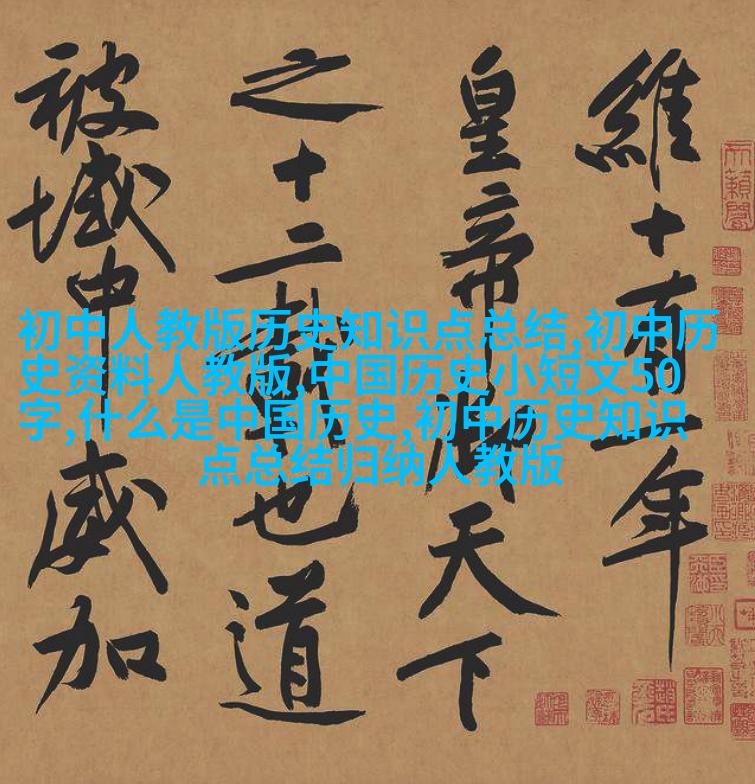 維十有一年
皇帝天下
之十二也道
被域中威加
初中人教版历史知识点总结,初中历
史资料人教版,中国历史小短文50
字,什么是中国历史,初中历史知识
点总结归纳人教版